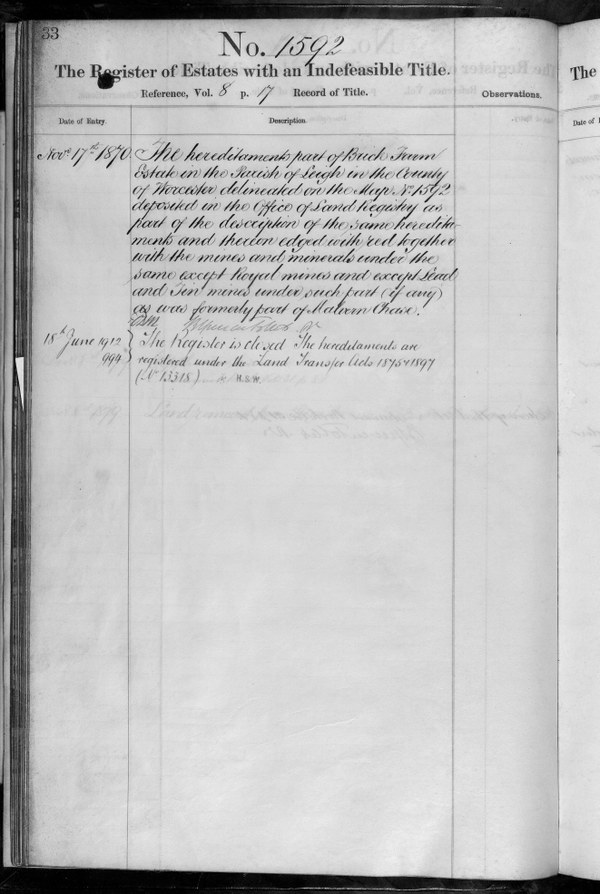 33
No. 1592
The Register of Estates with an Indefeasible Title.
Reference, Vol. 8 p. 17 Record of Title.
Observations.
Date of Entry.
Description
Novr 17th 1870
The hereditaments part of Brick Farm
Estate in the Parish of Leigh in the County
of Worcester delineated on the Map No. 1592
deposited in the Office of Land Registry as
part of the description of the same heredita-
ments and thereon edged with red together
with the mines and minerals under the
same except Royal mines and except Lead
and Tin mines under such part (if any)
as was formerly part of Malvern Chase.
18th June 1912
999
The Register is closed The hereditaments are
registered under the Land Transfer Acts 1875 & 1897
(No 13318) H.S.W.
The
Date of E